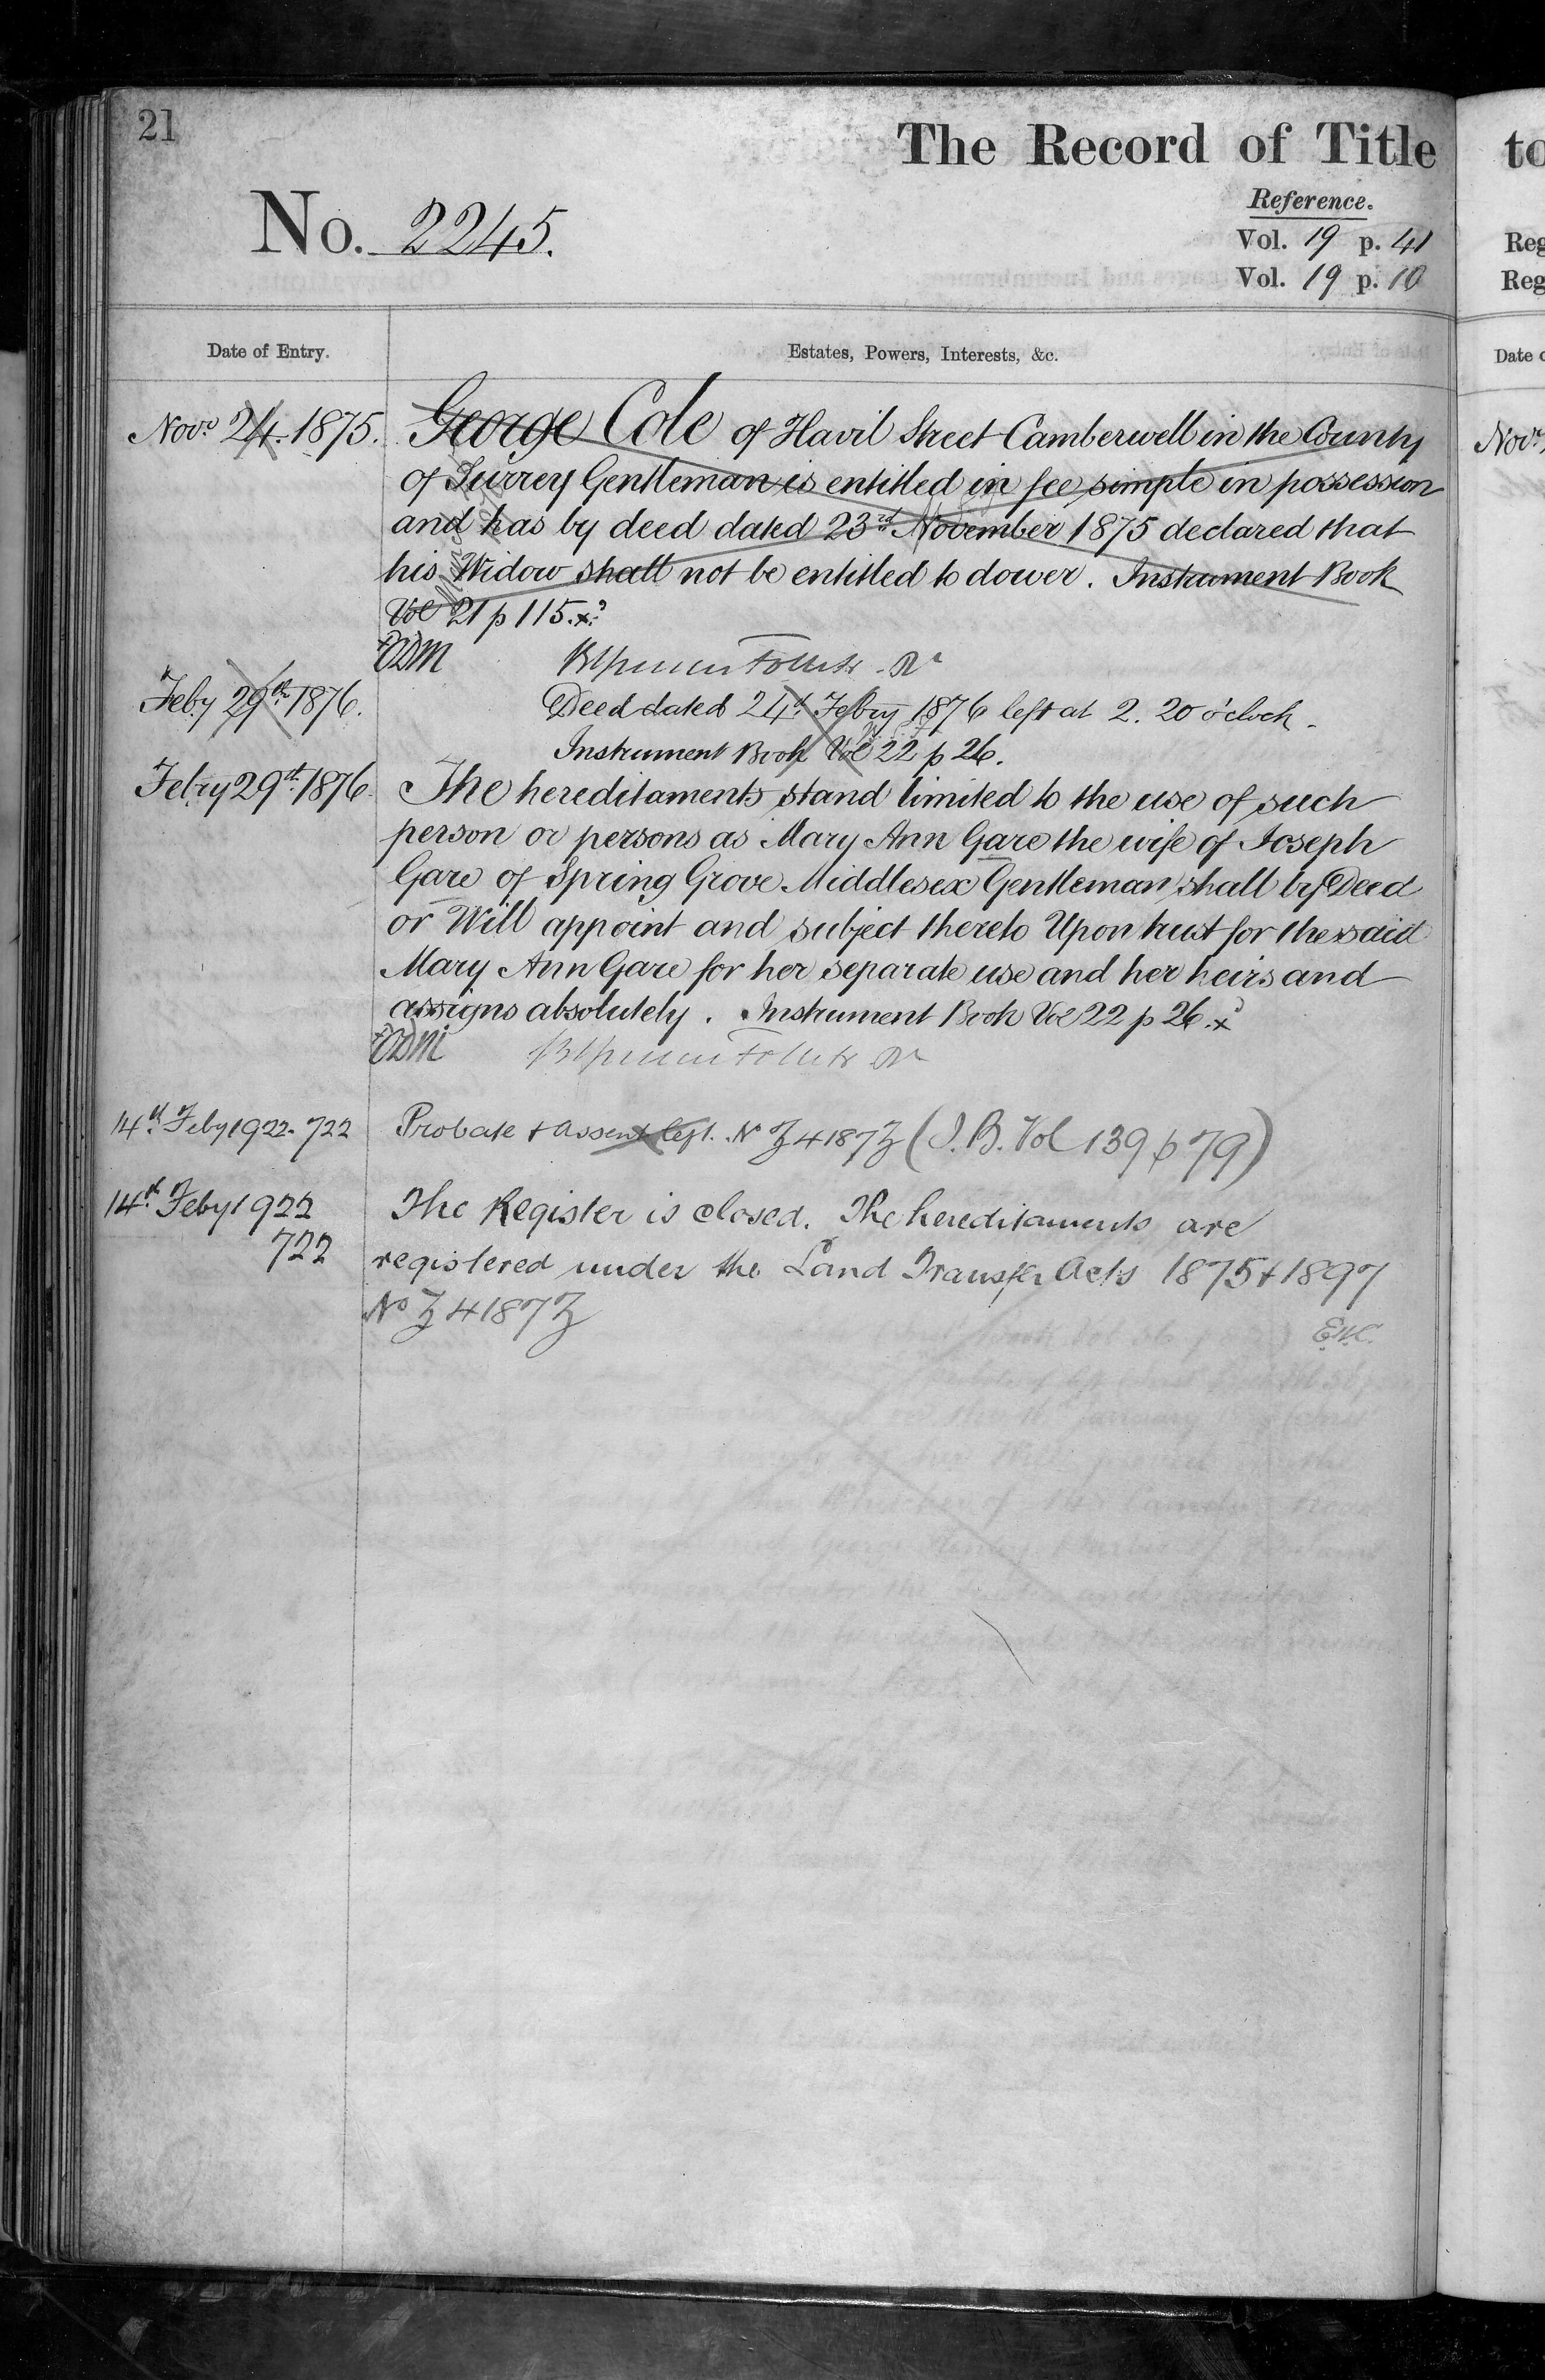 21
The Record of Title
to
Reference.
No. 2245.
Vol. 19 p. 41
Reg
Vol. 19 p. 10
Reg
Date of Entry.
Estates, Powers, Interests, &c.
Date o
Novr 24. 1875.
George Cole of Havil Street Camberwell in the County
Novr
of Surrey Gentleman is entitled in fee simple in possession
and has by deed dated 23rd November 1875 declared that
his Widow shall not be entitled to dower. Instrument Book
Vol 21 p 115.x
Feby 29th 1876.
Deed dated 24th Febry 1876 left at 2. 20 o'clock.
Instrument Book Vol 22 p 26.
Febry 29th 1876
The hereditaments stand limited to the use of such
person or persons as Mary Ann Gare the wife of Joseph
Gare of Spring Grove Middlesex Gentleman shall by Deed
or Will appoint and subject thereto Upon trust for the said
Mary Ann Gare for her separate use and her heirs and
assigns absolutely. Instrument Book Vol 22 p 26.x
14th Feby 1922. 722
Probate + Assent left. No Z4187Z (I.B. Vol 139 p 79)
14th Feby 1922
The Register is closed. The hereditaments are
722
registered under the Land Transfer Acts 1875 + 1897
No Z4187Z